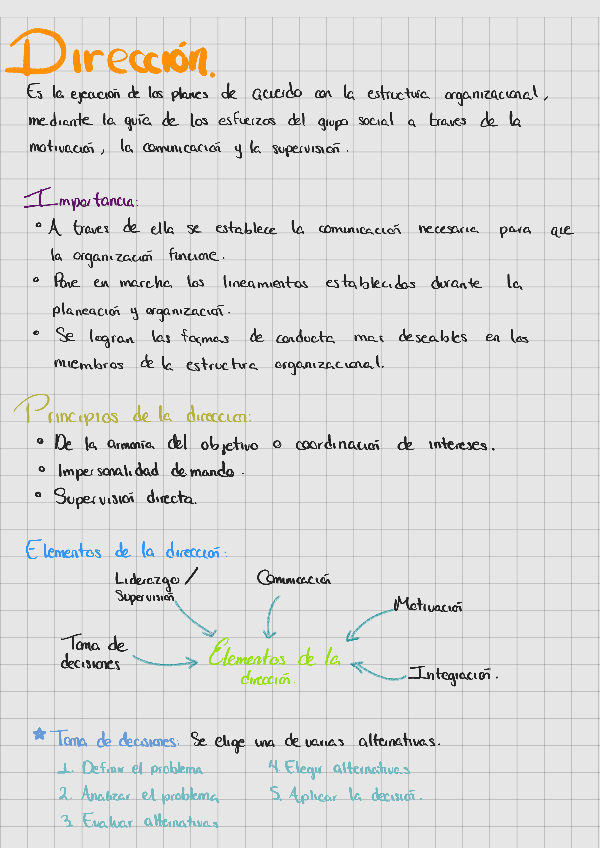 Dirección.
Es la ejecución de los planes de acuerdo con la estructura organizacional,
mediante la guía de los esfuerzos del grupo social a traves de la
motivación, la comunicación y la supervisión.
Importancia:
• A traves de ella se establece la comunicación necesaria para que
la organización funcione.
• Pone en marcha los lineamientos establecidos durante la
planeación y organización.
• Se logran las formas de conducta mas deseables en los
miembros de la estructura organizacional.
Principios de la dirección:
• De la armonía del objetivo o coordinación de intereses.
• Impersonalidad de mando.
• Supervisión directa.
Elementos de la dirección:
Liderazgo /
Supervisión
Comunicación
Motivación
Toma de
decisiones
Elementos de la
dirección.
Integración.
★ Toma de decisiones: Se elige una de varias alternativas.
1. Definir el problema
2. Analizar el problema
3. Evaluar alternativas
4. Elegir alternativas
5. Aplicar la decisión.